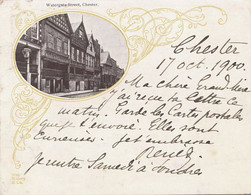 Watergate Street, Chester.
Chester
17 oct. 1900.
Ma chère Grand'Mère
j'ai reçu ta lettre ce
matin. Garde les Cartes postales
que je t'envoie. Elles sont
Curieuses. Je t'embrasse
Renée
Je rentre Samedi à Londres